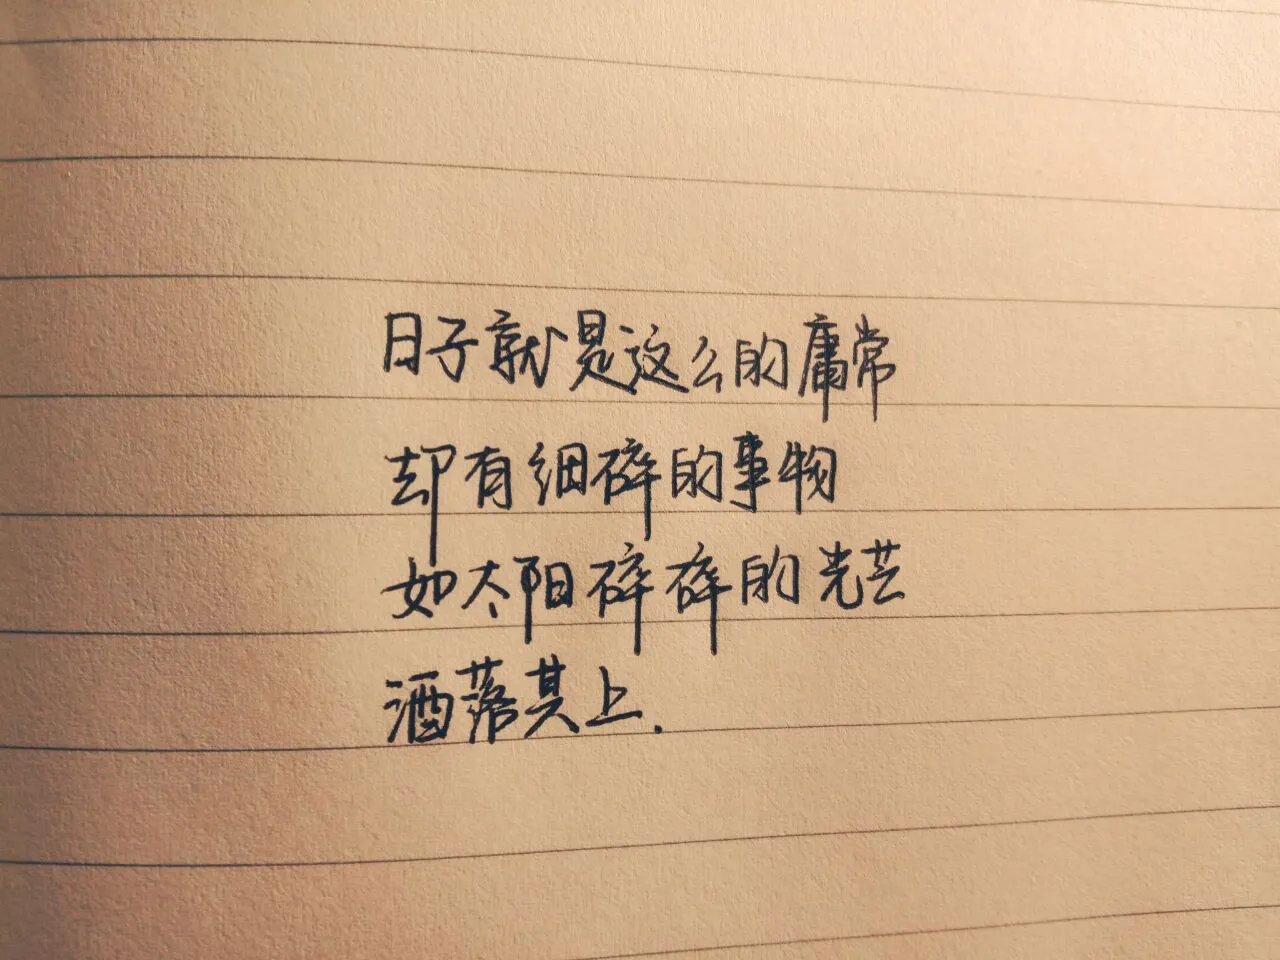 日子就是这么的庸常
却有细碎的事物
如太阳碎碎的光芒
洒落其上.